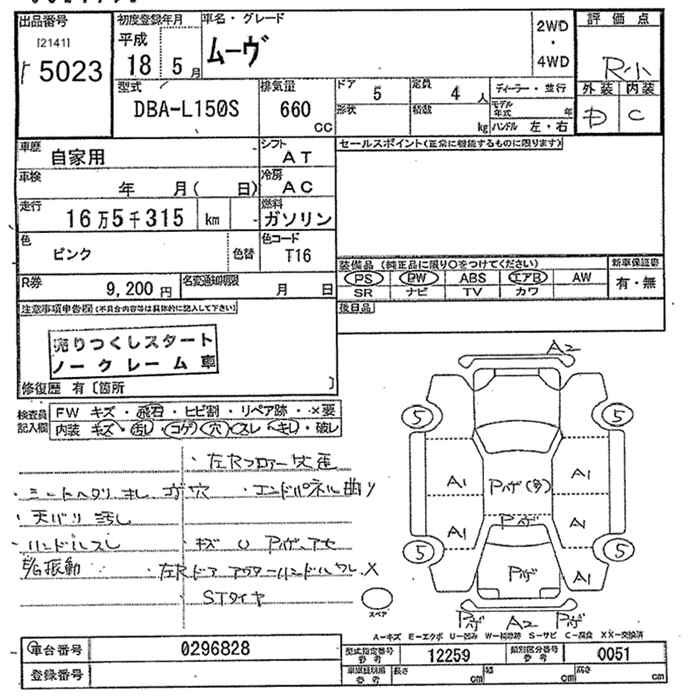 出品番号
[2141]
5023
初度登録年月
平成
18 5 月
車名・グレード
ムーヴ
2WD
・
4WD
評価点
R小
外装 内装
D C
型式
DBA-L150S
排気量
660
cc
ドア 5
定員 4 人
形状
積載 kg
ディーラー・並行
モデル年式 年
ハンドル 左・右
車歴
自家用
シフト
AT
セールスポイント(正常に機能するものに限ります)
車検
年 月( 日)
冷房
AC
走行
16万5千315 km
燃料
ガソリン
色
ピンク
色替
色コード
T16
装備品 (純正品に限り○をつけてください)
PS PW ABS エアB AW
SR ナビ TV カワ
新車保証書
有・無
R券
9,200 円
名変通知期限
月 日
後日品
注意事項申告欄(不具合内容等は具体的に記入して下さい)
売りつくしスタート
ノークレーム車
修復歴 有〔箇所 〕
検査員
記入欄
FW キズ・飛石・ヒビ割・リペア跡・×要
内装 キズ・汚レ・コゲ・穴・スレ・キレ・破レ
・左Rフロアー
・シートヘタリ キレ コゲ穴 ・エンドパネル曲リ
・天バリ 汚し
・ハンドルスレ ・キズ U Pハゲ
E/G振動 ・左Rドア アウターハンドルワレ X
STタイヤ
A2
5 5
A1 Pハゲ(多) A1
Pハゲ
A1 A1
5 5
Pハゲ A1
Pハゲ A2 Pハゲ
スペア
A-キズ E-エクボ U-凹み W-補修跡 S-サビ C-腐食 XX-交換済
車台番号 0296828
登録番号
型式指定番号
参考
12259
類別区分番号
参考
0051
車庫証明用
参考
長さ cm 幅 cm 高さ cm